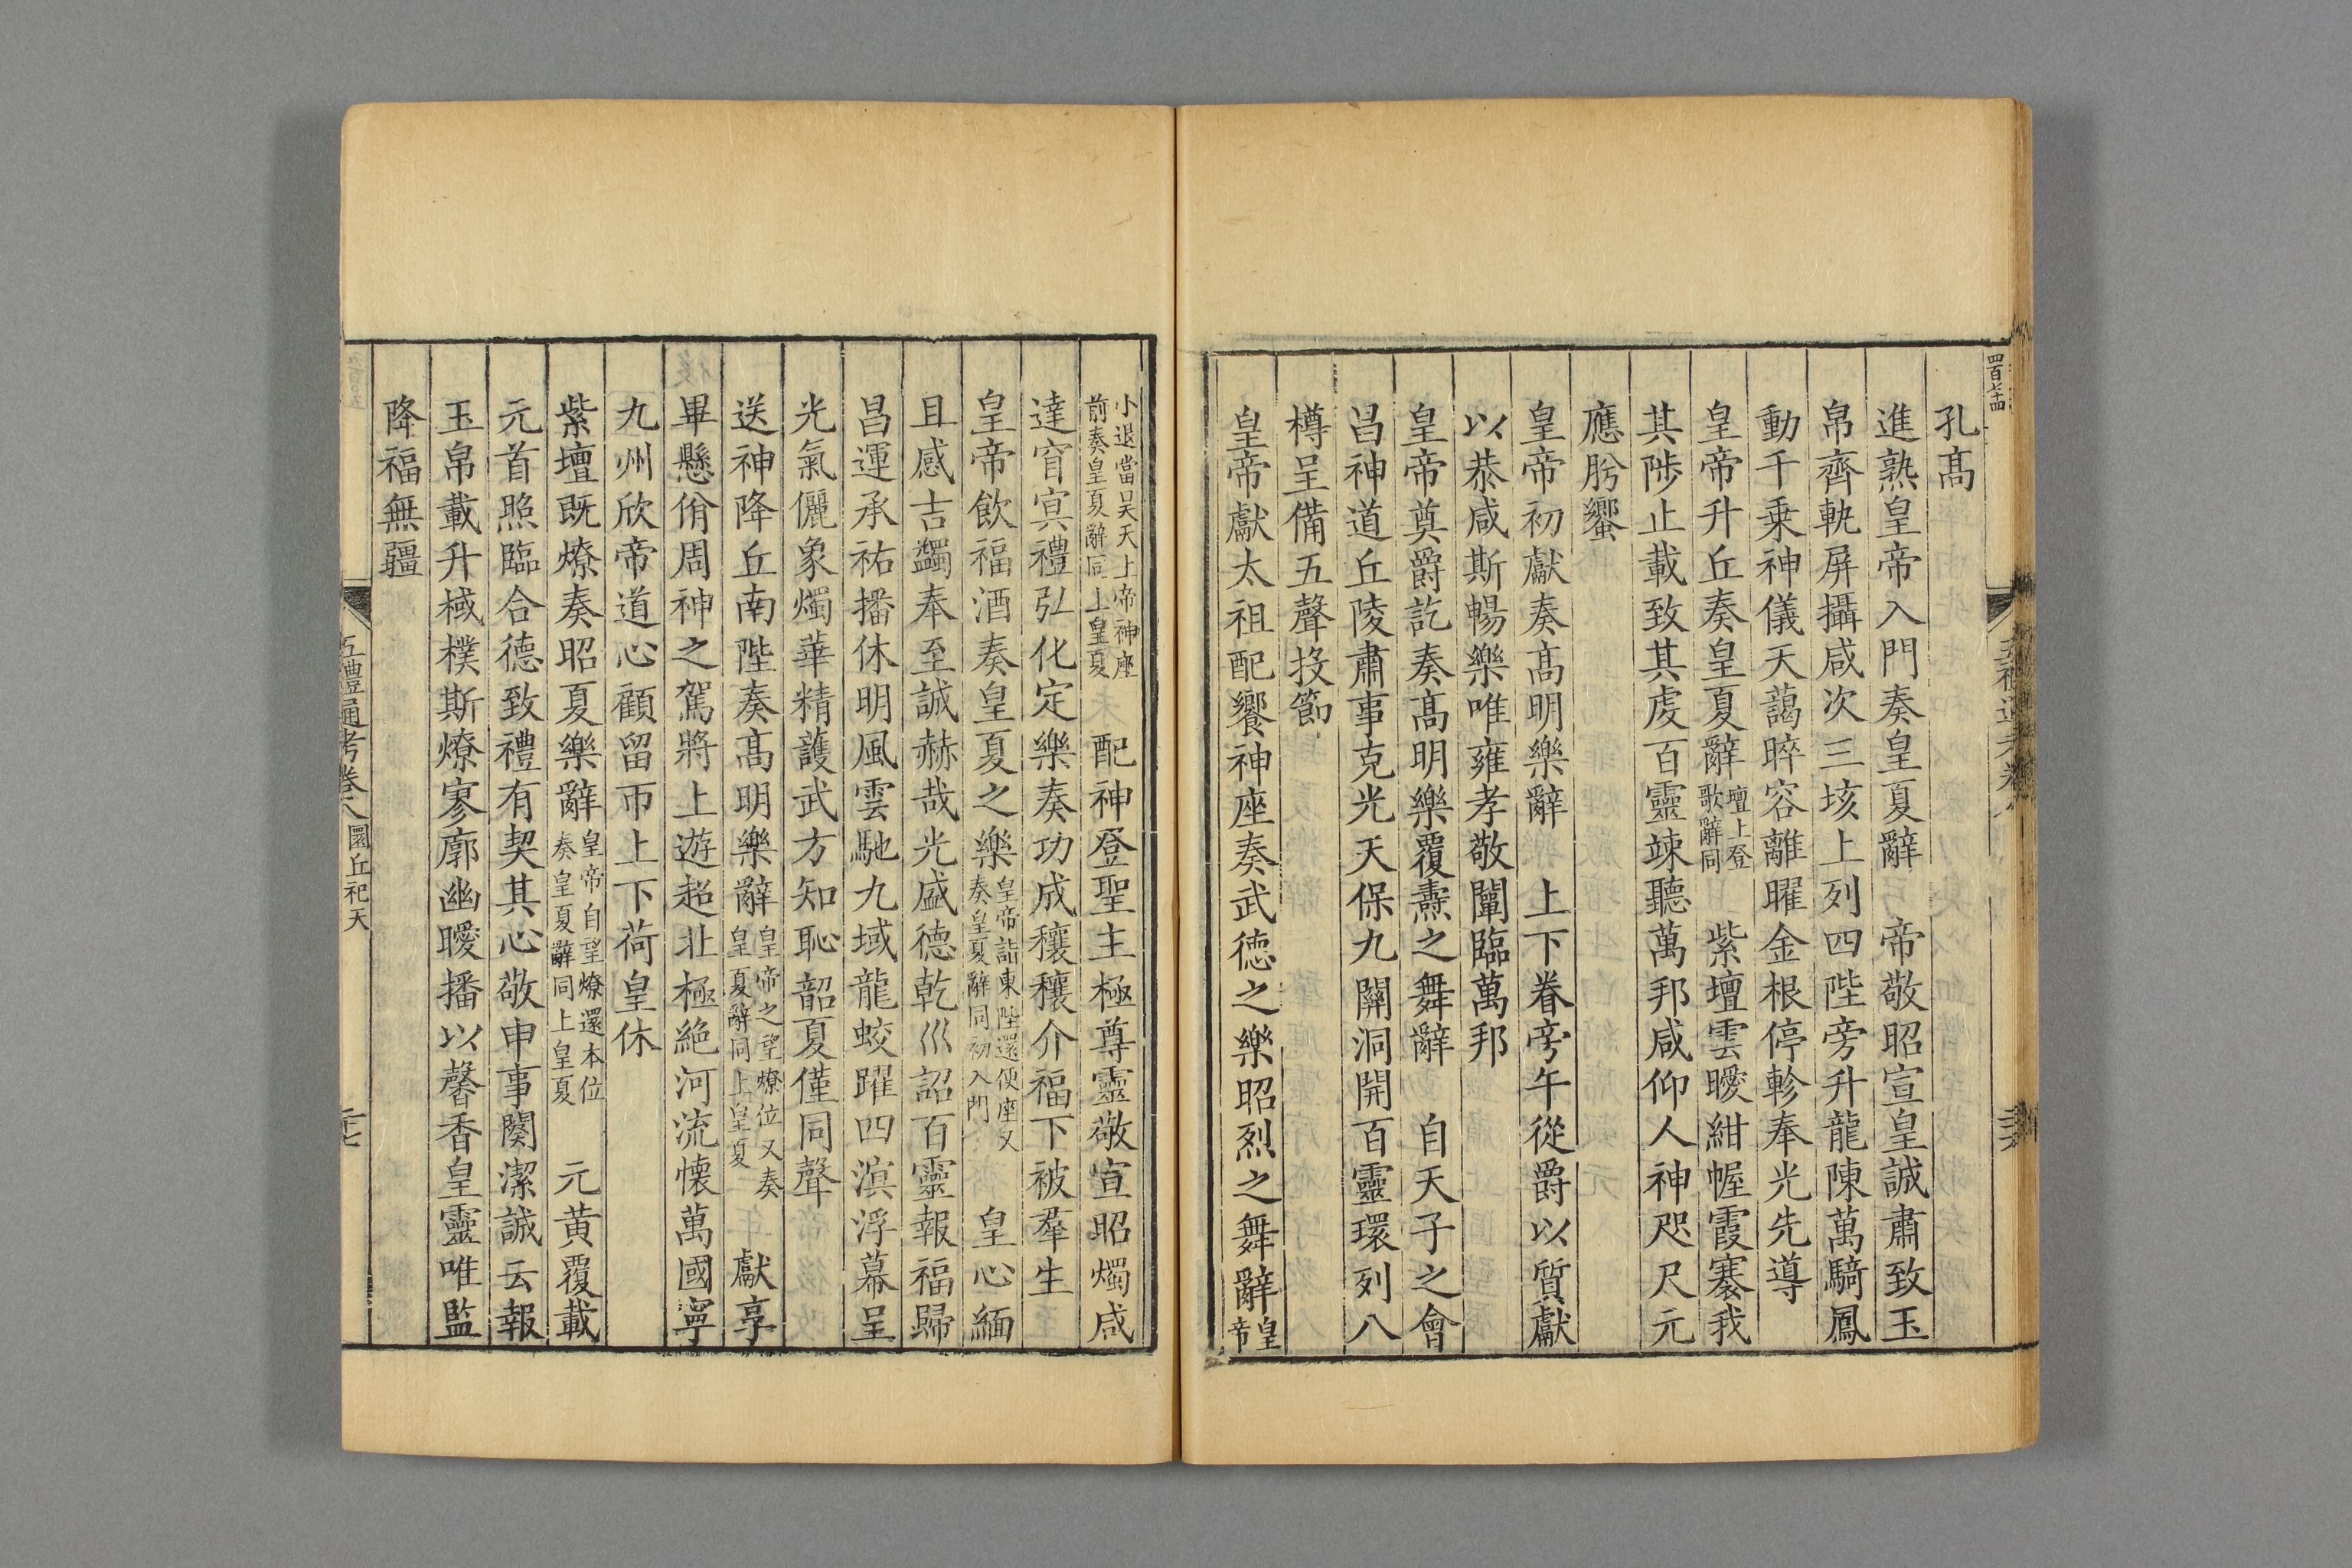 四百十四
孔髙
進熟皇帝入門奏皇夏辭　帝敬昭宣皇誠肅致玉
帛齊軌屏攝咸次三垓上列四陛旁升龍陳萬騎鳳
動千乗神儀天藹晬容離曜金根停軫奉光先導
皇帝升丘奏皇夏辭壇上登歌辭同　紫壇雲曖紺幄霞褰我
其陟止載致其虔百靈竦聽萬邦咸仰人神咫尺元
應肸蠁
皇帝初獻奏髙明樂辭　上下眷旁午從爵以質獻
以恭咸斯暢樂唯雍孝敬闡臨萬邦
皇帝奠爵訖奏髙明樂覆燾之舞辭　自天子之會
昌神道丘陵肅事克光天保九關洞開百靈環列八
樽呈備五聲投節
皇帝獻太祖配饗神座奏武德之樂昭烈之舞辭皇帝
小退當昊天上帝神座前奏皇夏辭同上皇夏　配神登聖主極尊靈敬宣昭燭咸
達窅冥禮弘化定樂奏功成穰穰介福下被羣生
皇帝飲福酒奏皇夏之樂皇帝詣東陛還便座又奏皇夏辭同初入門　皇心緬
且感吉蠲奉至誠赫哉光盛德乾巛詔百靈報福歸
昌運承祐播休明風雲馳九域龍蛟躍四溟浮幕呈
光氣儷象燭華精䕶武方知恥韶夏僅同聲
送神降丘南陛奏髙明樂辭皇帝之望燎位又奏皇夏辭同上皇夏　獻享
畢懸佾周神之駕將上遊超北極絶河流懐萬國寧
九州欣帝道心顧留帀上下荷皇休
紫壇既燎奏昭夏樂辭皇帝自望燎還本位奏皇夏辭同上皇夏　元黄覆載
元首照臨合德致禮有契其心敬申事闋潔誠云報
玉帛載升棫樸斯燎寥廓幽曖播以馨香皇靈唯監
降福無疆
五禮通考卷八　圜丘祀天